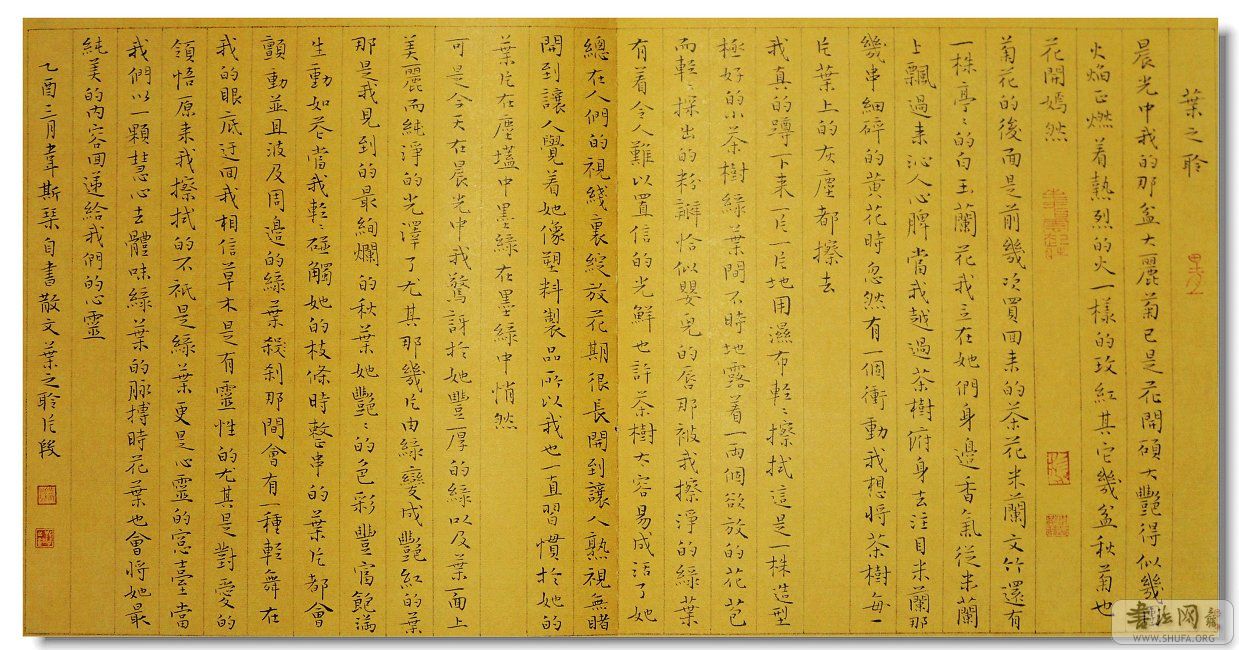 葉之聆
晨光中我的那盆大麗菊已是花開碩大艷得似幾團
火焰正燃着熱烈的火一樣的玫紅其它幾盆秋菊也
花開嫣然
菊花的後面是前幾次買回来的茶花米蘭文竹還有
一株亭〻的白玉蘭花我立在她們身邊香氣從米蘭
上飄過来沁人心脾當我越過茶樹俯身去注目米蘭那
幾串細碎的黃花時忽然有一個衝動我想將茶樹每一
片葉上的灰塵都擦去
我真的蹲下来一片一片地用濕布輕〻擦拭這是一株造型
極好的小茶樹綠葉間不時地露着一兩個欲放的花苞
而輕〻探出的粉瓣恰似嬰兒的唇那被我擦淨的綠葉
有着令人難以置信的光鮮也許茶樹太容易成活了她
總在人們的視綫裏綻放花期很長開到讓人熟視無睹
開到讓人覺着她像塑料製品所以我也一直習慣於她的
葉片在塵壒中墨綠在墨綠中悄然
可是今天在晨光中我驚訝於她豐厚的綠以及葉面上
美麗而純淨的光澤了尤其那幾片由綠變成艷紅的葉
那是我見到的最絢爛的秋葉她艷〻的色彩豐富飽滿
生動如花當我輕〻碰觸她的枝條時整串的葉片都會
顫動並且波及周邊的綠葉殺刹那間會有一種輕舞在
我的眼底迂回我相信草木是有靈性的尤其是對愛的
領悟原来我擦拭的不祇是綠葉更是心靈的窗臺當
我們以一顆慧心去體味綠葉的脉搏時花葉也會將她最
純美的內容回遞給我們的心靈
乙酉三月韋斯琴自書散文葉之聆片段
書法网
WWW.SHUFA.ORG